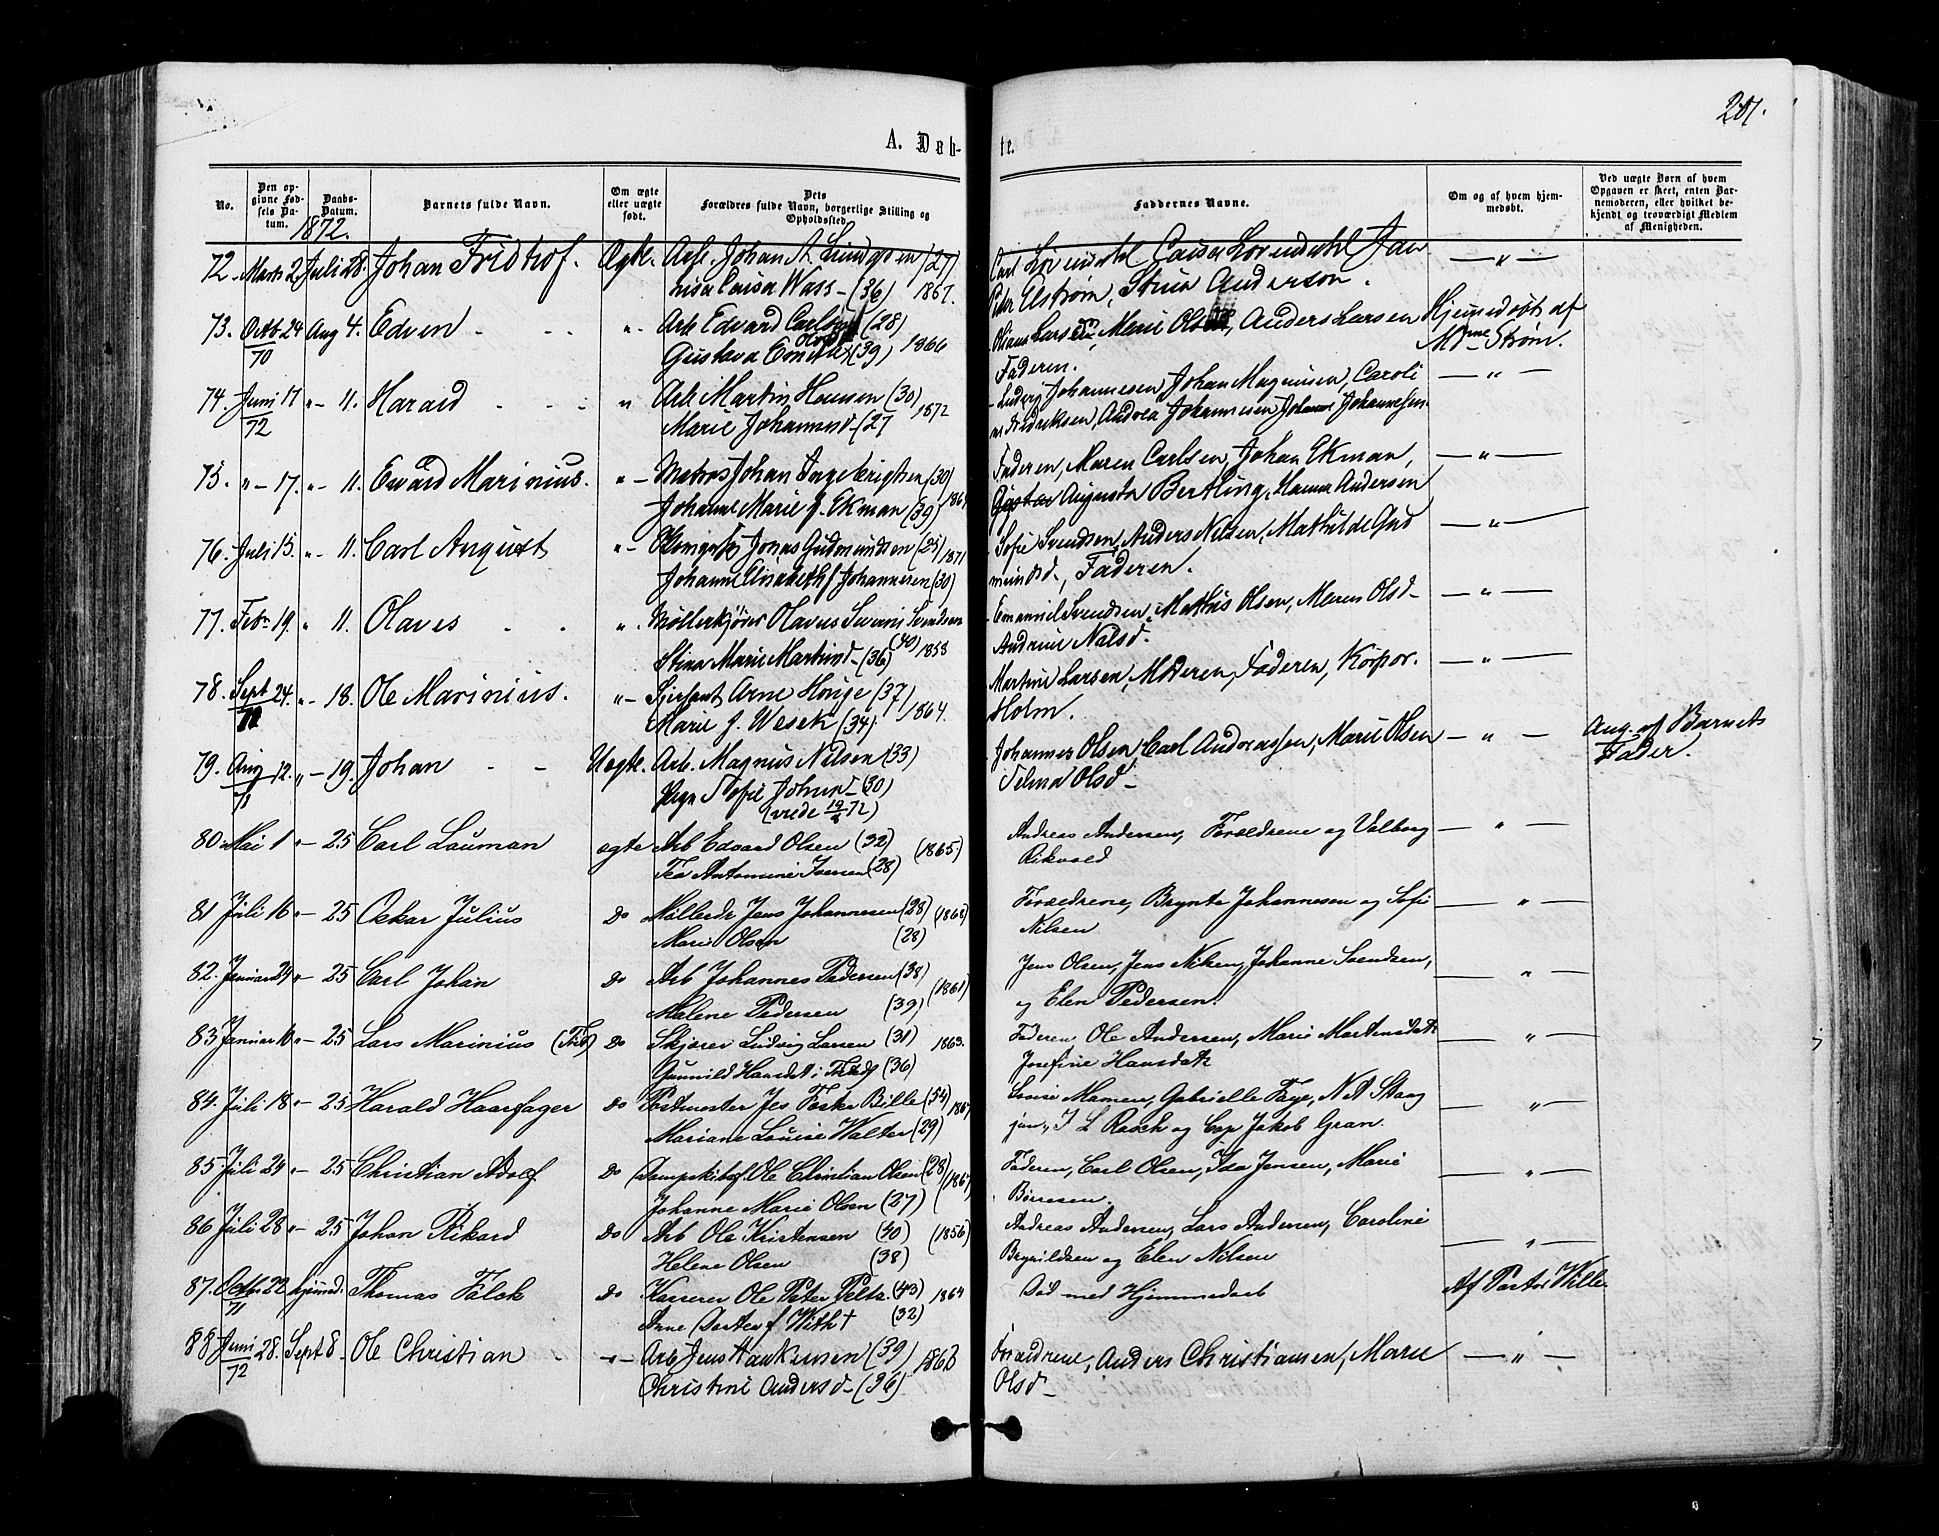 201.
A. Døb-
te.
No.
Den op-
givne Fød-
sels Da-
tum.
Daabs-
Datum.
Barnets fulde Navn.
Om ægte
eller uægte
født.
Dets
Forældres fulde Navn, borgerlige Stilling og
Opholdssted.
Faddernes Navne.
Om og af hvem hjem-
medøbt.
Ved uægte Børn af hvem
Opgaven er skeet, enten Bar-
nemoderen, eller hvilket be-
kjendt og troværdigt Medlem
af Menigheden.
1872.
72. Marts 2 Juli 28. Johan Fridthof. Ægte. Arb. Johan A. (27) Carl Caisa — „ —
Caisa Wass — (36) 1867. Peter Elstrøm, Stina Anderson.
73. Octb 24 Aug 4. Edvin „ Arb Edvard (28) Larsen, Marie Anders Larsen Hjemmedøbt af
70 Gustava (39) 1866 Faderen. Mdme Strøm.
74. Juni 17 „ — 11. Harald „ Arb Martin Hansen (30) Johannesen, Johan Magnusen, Caroli — „ —
72 Marie Johannesd — (27 1872 ne Fredriksen, Andrea Johannesen, Johanne Johannesen
75. „ — 17. „ — 11. Edvard Marinius. „ — Matros Johan (30) Faderen, Maren Carlsen, Johan Ekman, — „ —
Johanne Marie f. Ekman (39) Augusta Bertling, Hanna Andersen
76. Juli 15. „ — 11. Carl August „ — Jonas Gudmundsen (25) 1871 Sofie Svendsen, Anders Nilsen, Mathilde Gud — „ —
Johanne Elisabeth f Johannesen (30) mundsd., Faderen.
77. Febr. 19. „ 11. Olaves „ Møllerkjører Olaves Severin Svendsen Emanuel Svendsen, Mathis Olsen, Maren Olsd — „ —
Stina Marie Martinsd — (36) (40) 1858 Andrine Nalsd.
78. Sept 24. „ — 18. Ole Marinius. „ — Sersjant Arne Houge (37) Martine Larsen, Moderen, Faderen, Korpor. — „ —
71 Marie f. Wesek (34). 1864. Holm.
79. Aug 12. „ — 19. Johan Uægte. Arb. Magnus Nilsen (33) Johannes Olsen, Carl Andreassen, Marie Olsen — „ — Ang. af Barnets
71 Pige Sofie Johnsd — (30) Selma Olsd — Fader.
(viede 19/8 72)
80 Mai 1 „ — 25 Carl Lauman ægte Arb Edvard Olsen (32) (1865) Andreas Andersen, Forældrene og Valborg — „ —
Tea Antomine Iversen (28) Rikvold
81 Juli 16 „ — 25 Oskar Julius Do Jens Johannesen (28) (1868) Forældrene, Brynte Johannesen og Sofie — „ —
Marie Olsen (28) Nilsen
82. Januar 24 „ — 25 Carl Johan Do Arb Johannes Pedersen (38) (1861) Jens Olsen, Jens Nilsen, Johanne Svendsen, — „ —
Malene Pedersen (39) og Elen Pedersen.
83 Januar 10 „ — 25 Lars Marinius Do Ludvig Larsen (31) 1863. Faderen, Ole Andersen, Marie Martensdatr — „ —
Gunnild Hansdat i (36) Josefine Hansdatr
84. Juli 18 „ — 25 Harald Haarfager Do Postmester Jes Bille (54) 1867 Louise Mamen, Gabrielle Faye, — „ —
Mariane Louise Walter (29) jun., I L Rasch og Cap Jakob Gran.
85. Juli 24 „ — 25 Christian Adolf Do Ole Christian Olsen (28) (1867 Faderen, Carl Olsen, Ida Jensen, Marie — „ —
Johanne Marie Olsen (27) Børresen.
86 Juli 28 „ — 25 Johan Rikard Do Arb Ole Kristensen (40) (1856) Andreas Andersen, Lars Andersen, Caroline — „ —
Helene Olsen (38) Brynildsen og Elen Nilsen
87. Octbr 22 hjemmed: Thomas Falck Do Kasserer Ole Peter (43) 1864 Død med Hjemmedaab Af Pastor Wille
71 Anne Dortea f With † (32)
88 Juni 28. Sept 8 Ole Christian „ — Arb Jens Haakensen (39) 1863 Forældrene, Anders Christiansen, Marie — „ —
72 Christine Andersd — (36) Olsd —